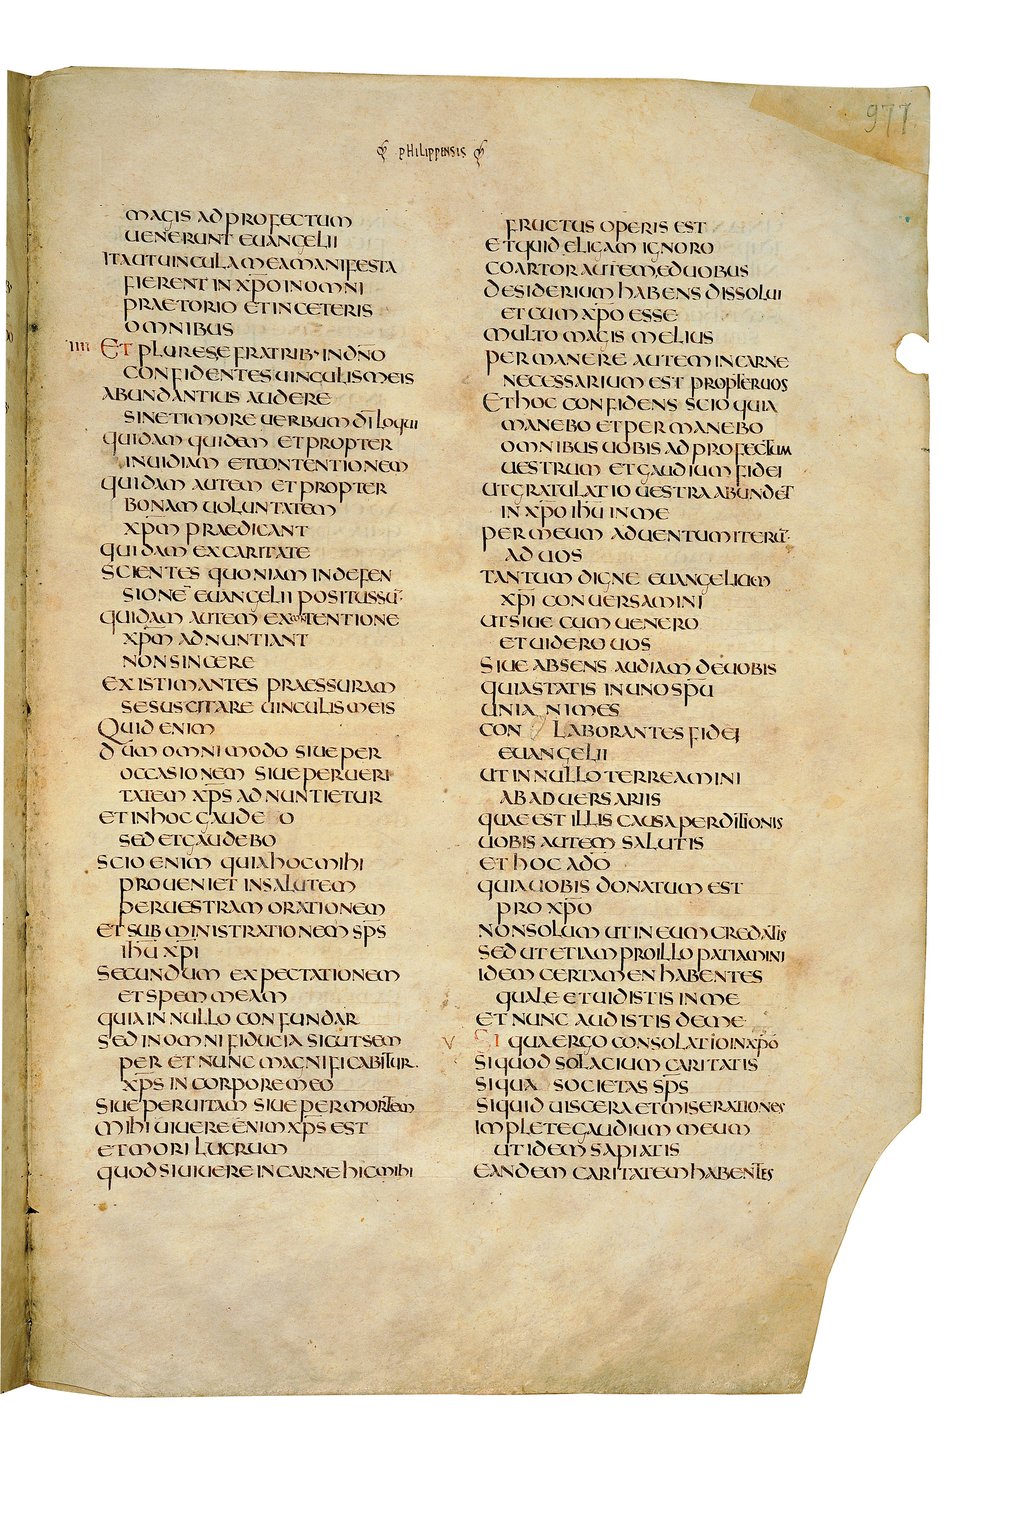 977
PHILIPPENSIS
MAGIS AD PROFECTUM
UENERUNT EUANGELII
ITAUTUINCULAMEAMANIFESTA
FIERENT IN XP̅O IN OMNI
PRAETORIO ET IN CETERIS
OMNIBUS
IIII ET PLURES E FRATRIB· IN DN̅O
CONFIDENTES UINCULIS MEIS
ABUNDANTIUS AUDERE
SINE TIMORE UERBUM DI̅ LOQUI
QUIDAM QUIDEM ET PROPTER
INUIDIAM ET CONTENTIONEM
QUIDAM AUTEM ET PROPTER
BONAM UOLUNTATEM
XP̅M PRAEDICANT
QUIDAM EX CARITATE
SCIENTES QUONIAM IN DEFEN
SIONE EUANGELII POSITUS SU̅·
QUIDAM AUTEM EX CONTENTIONE
XP̅M ADNUNTIANT
NON SINCERE
EXISTIMANTES PRAESSURAM
SE SUSCITARE UINCULIS MEIS
QUID ENIM
DUM OMNIMODO SIUE PER
OCCASIONEM SIUE PER UERI
TATEM XP̅S ADNUNTIETUR
ET IN HOC GAUDE O
SED ET GAUDEBO
SCIO ENIM QUIA HOC MIHI
PROUENIET IN SALUTEM
PER UESTRAM ORATIONEM
ET SUBMINISTRATIONEM SP̅S
IH̅U XP̅I
SECUNDUM EXPECTATIONEM
ET SPEM MEAM
QUIA IN NULLO CONFUNDAR
SED IN OMNI FIDUCIA SICUT SEM
PER ET NUNC MAGNIFICABITUR
XP̅S IN CORPORE MEO
SIUE PER UITAM SIUE PER MORTEM
MIHI UIUERE ENIM XP̅S EST
ET MORI LUCRUM
QUOD SI UIUERE IN CARNE HIC MIHI
FRUCTUS OPERIS EST
ET QUID ELIGAM IGNORO
COARTOR AUTEM E DUOBUS
DESIDERIUM HABENS DISSOLUI
ET CUM XP̅O ESSE
MULTO MAGIS MELIUS
PERMANERE AUTEM IN CARNE
NECESSARIUM EST PROPTER UOS
ET HOC CONFIDENS SCIO QUIA
MANEBO ET PERMANEBO
OMNIBUS UOBIS AD PROFECTUM
UESTRUM ET GAUDIUM FIDEI
UT GRATULATIO UESTRA ABUNDET
IN XP̅O IH̅U IN ME
PER MEUM ADUENTUM ITERU̅·
AD UOS
TANTUM DIGNE EUANGELIUM
XP̅I CONUERSAMINI
UT SIUE CUM UENERO
ET UIDERO UOS
SIUE ABSENS AUDIAM DE UOBIS
QUIA STATIS IN UNO SP̅U
UNIANIMES
CON LABORANTES FIDEI
EUANGELII
UT IN NULLO TERREAMINI
AB ADUERSARIIS
QUAE EST ILLIS CAUSA PERDITIONIS
UOBIS AUTEM SALUTIS
ET HOC A DO̅
QUIA UOBIS DONATUM EST
PRO XP̅O
NON SOLUM UT IN EUM CREDATIS
SED UT ETIAM PRO ILLO PATIAMINI
IDEM CERTAMEN HABENTES
QUALE ET UIDISTIS IN ME
ET NUNC AUDISTIS DE ME
V SI QUA ERGO CONSOLATIO IN XP̅O
SI QUOD SOLACIUM CARITATIS
SI QUA SOCIETAS SP̅S
SI QUID UISCERA ET MISERATIONES
IMPLETE GAUDIUM MEUM
UT IDEM SAPIATIS
EANDEM CARITATEM HABENTES